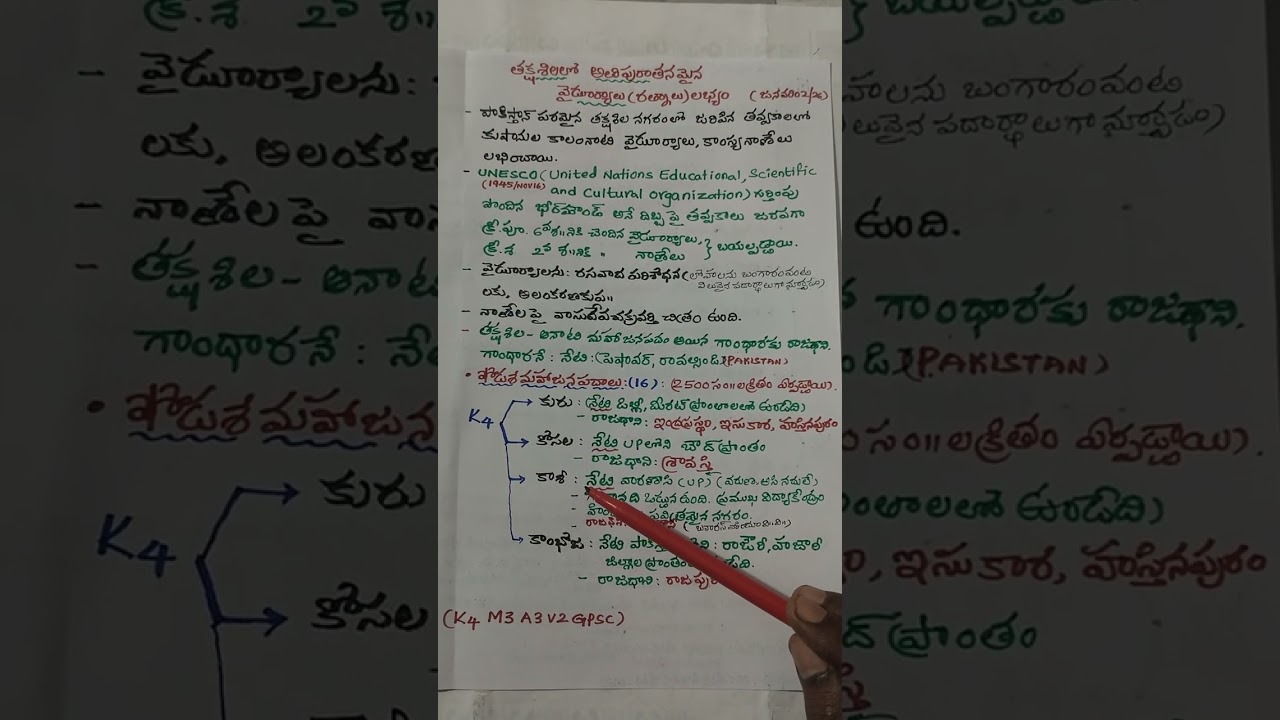 తక్షశిలలో అతిపురాతనమైన
వైడూర్యాలు (రత్నాలు) లభ్యం (జనవరి 02/26)
- పాకిస్తాన్ పరమైన తక్షశిల నగరంలో జరిపిన తవ్వకాలలో
కుషాణుల కాలంనాటి వైడూర్యాలు, కాంస్య నాణేలు
లభించాయి.
- UNESCO (United Nations Educational, Scientific
(1945/NOV16) and Cultural Organization) గుర్తింపు
పొందిన భీర్‌మౌండ్ అనే దిబ్బ పై తవ్వకాలు జరపగా
క్రీ.పూ. 6వ శ॥నికి చెందిన వైడూర్యాలు,
క్రీ.శ 2వ శ॥నికి " నాణేలు } బయల్పడ్డాయి.
- వైడూర్యాలను: రసవాద పరిశోధన (లోహాలను బంగారంవంటి
విలువైన పదార్థాలుగా మార్చడం)
లకు, అలంకరణకుప॥
- నాణేల పై వాసుదేవచక్రవర్తి చిత్రం ఉంది.
- తక్షశిల - అనాటి మహాజనపదం అయిన గాంధారకు రాజధాని.
గాంధారనే : నేటి : (పెషావర్, రావల్పిండి (PAKISTAN)
• షోడుశ మహాజనపదాలు: (16) : (2500 సం॥ల క్రితం ఏర్పడ్డాయి).
K4
కురు : నేటి ఢిల్లీ, మీరట్ ప్రాంతాలలో ఉండేది)
- రాజధాని: ఇంద్రప్రస్థం, ఇసుకార, హస్తినపురం
కోసల : నేటి UPలోని ఔద్ ప్రాంతం
- రాజధాని: శ్రావస్తి
కాశీ : నేటి వారణాసి (UP) (వరుణ, అసి నదులే)
ఒడ్డున ఉంది. ప్రముఖ విద్యాకేంద్రం
పవిత్రమైన నగరం.
- రాజధాని:
కాంభోజ : నేటి రాజౌరీ, హజారీ
జిల్లాల
- రాజధాని: రాజపురం
(K4 M3 A3 V2 GPSC)